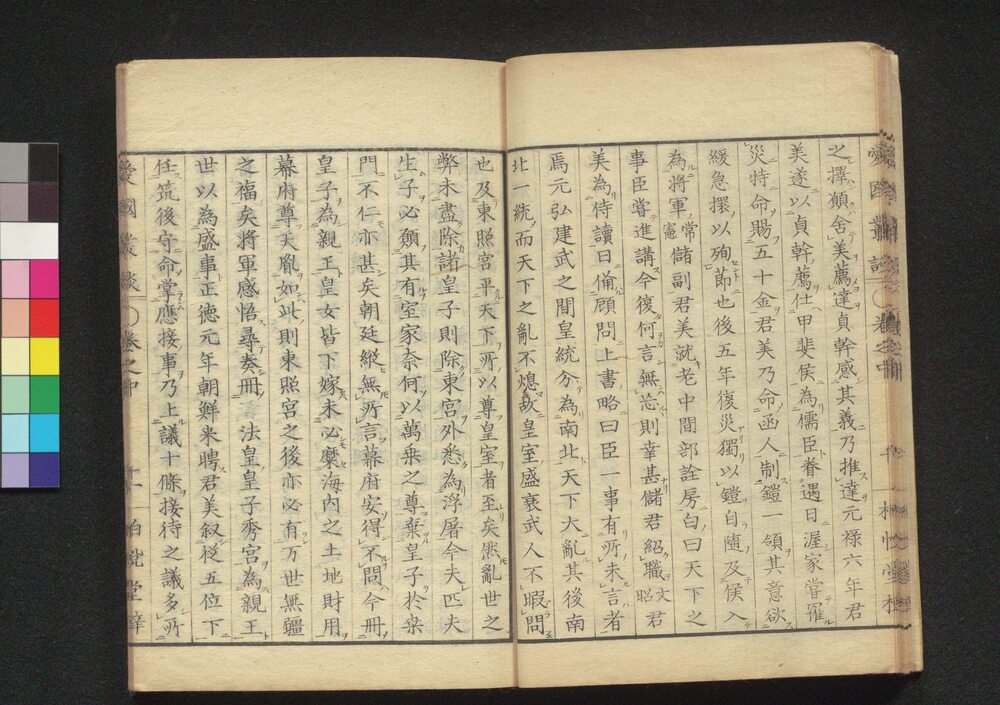 之擇願舍美薦達貞幹感其義乃推達元禄六年君
美遂以貞幹薦仕甲斐侯為儒臣眷遇日渥家嘗罹
災特命賜五十金君美乃命函人制鎧一領其意欲
緩急擐以殉節也後五年復災獨以鎧自随及侯入
為将軍常憲儲副君美就老中間部詮房白曰天下之
事臣嘗進講今復何言無忘則幸甚儲君紹職文昭君
美為侍讀日備顧問上書略曰臣一事有所未言者
焉元弘建武之間皇統分為南北天下大亂其後南
北一統而天下之亂不熄故皇室盛衰武人不暇問
也及東照宮平天下所以尊皇室者至矣然亂世之
弊未盡除諸皇子則除東宮外悉為浮屠今夫匹夫
生子必願其有室家奈何以萬乗之尊棄皇子於桒
門不仁亦甚矣朝廷縱無所言幕府安得不問今冊
皇子為親王皇女皆下嫁未必糜海内之土地財用
幕府尊天胤如此則東照宮之後亦必有万世無疆
之福矣将軍感悟尋奏冊法皇皇子秀宮為親王
世以為盛事正徳元年朝鮮来聘君美叙従五位下
任筑後守命掌應接事乃上議十條接待之議多所
愛國叢談 卷之中